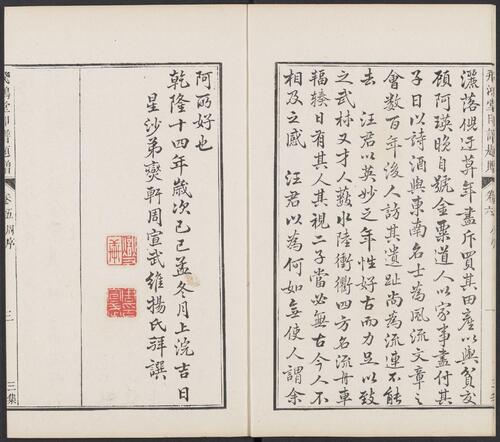 灑落似迂莫年盡斥買其田產以與貧交
顧阿瑛晚自號金粟道人以家事盡付其
子日以詩酒與東南名士為風流文章之
會數百年後人訪其遺趾尚為流連不能
去 汪君以英妙之年性好古而力足以致
之武林又才人藪水陸衝衢四方名流舟車
輻輳日有其人其視二子當必無古今人不
相及之感 汪君以為何如無使人謂余
阿所好也
乾隆十四年歲次己巳孟冬月上浣吉日
星沙弟爕軒周宣武維揚氏拜譔
飛鴻堂印譜題贈 卷五周序
三
三集